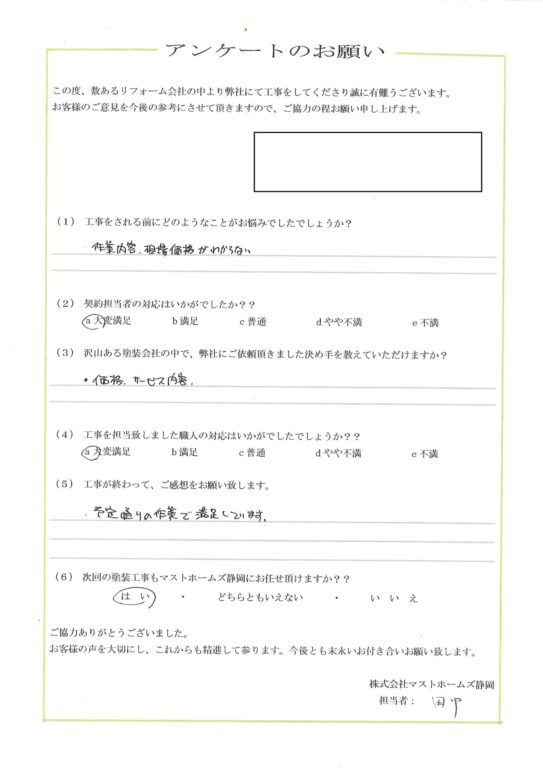 アンケートのお願い
この度、数あるリフォーム会社の中より弊社にて工事をしてくださり誠に有難うございます。
お客様のご意見を今後の参考にさせて頂きますので、ご協力の程お願い申し上げます。
(1) 工事をされる前にどのようなことがお悩みでしたでしょうか？
・作業内容、相場価格がわからない
(2) 契約担当者の対応はいかがでしたか？？
a 大変満足 b 満足 c 普通 d やや不満 e 不満
(3) 沢山ある塗装会社の中で、弊社にご依頼頂きました決め手を教えていただけますか？
・価格、サービス内容、
(4) 工事を担当致しました職人の対応はいかがでしたでしょうか？？
a 大変満足 b 満足 c 普通 d やや不満 e 不満
(5) 工事が終わって、ご感想をお願い致します。
・予定通りの作業で満足しています。
(6) 次回の塗装工事もマストホームズ静岡にお任せ頂けますか？？
はい ・ どちらともいえない ・ いいえ
ご協力ありがとうございました。
お客様の声を大切にし、これからも精進して参ります。今後とも末永いお付き合いお願い致します。
株式会社マストホームズ静岡
担当者： 田中